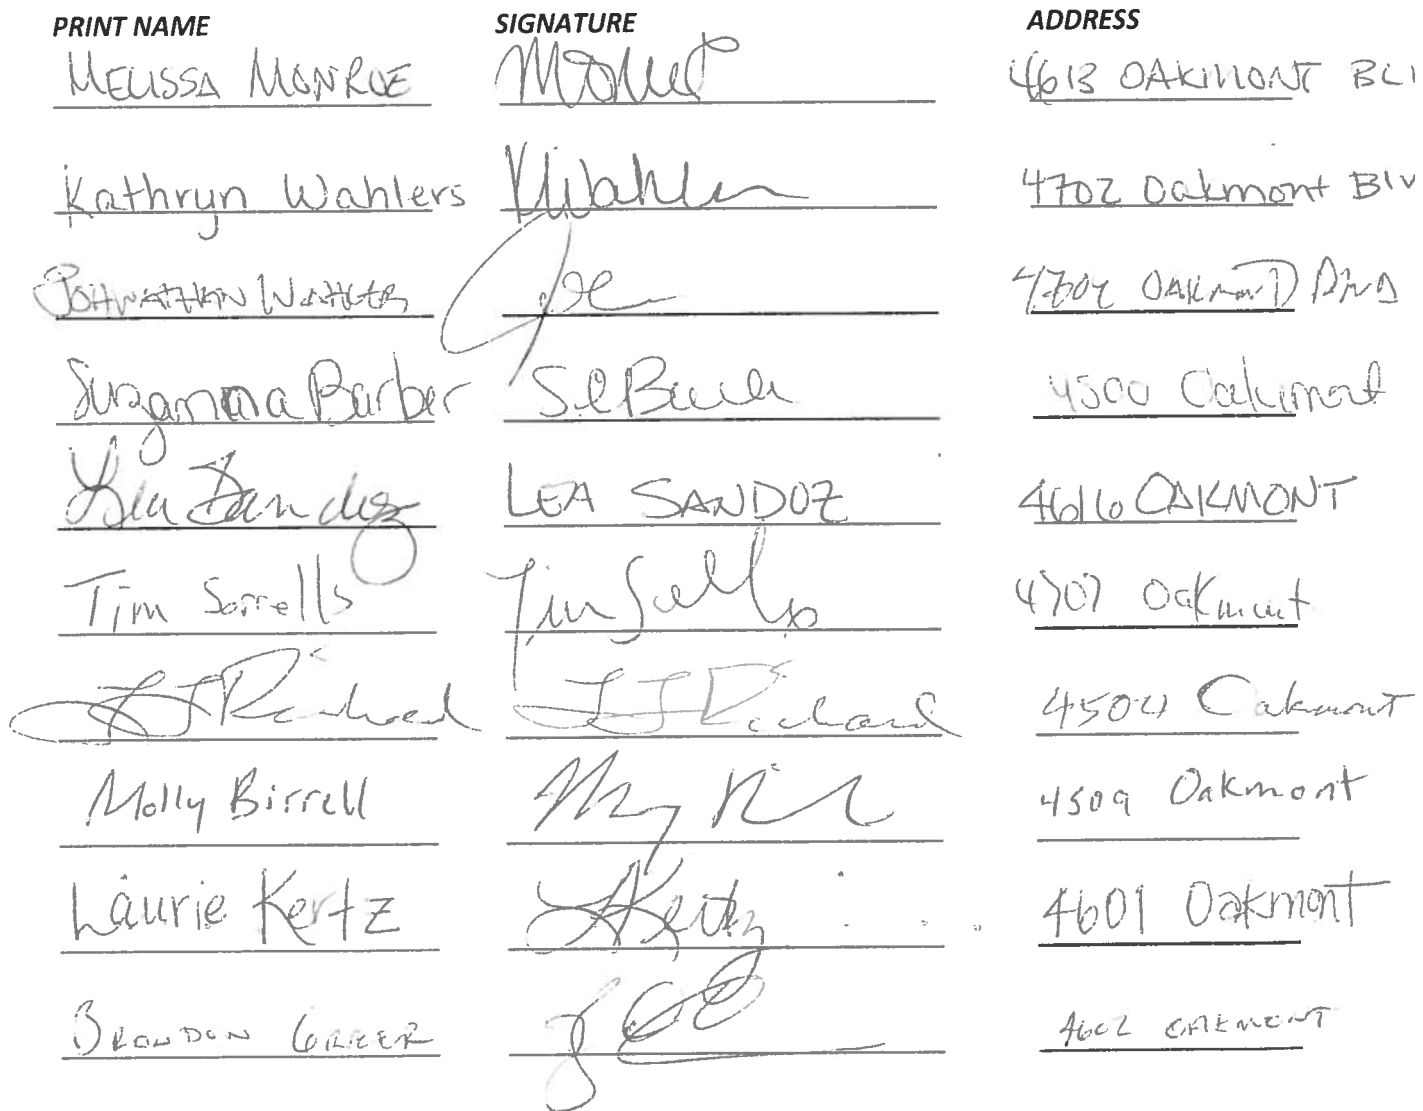 PRINT NAME SIGNATURE ADDRESS
MELISSA MONROE 4613 OAKMONT BL
Kathryn Wahlers KWahlers 4702 Oakmont Blv
JOHNATHAN WAHLERS OAKMONT Blvd
Suzanna Barber 4500 Oakmont
Lea Sandoz LEA SANDOZ 4616 OAKMONT
Tim Sorrells Tim Sorrells 4707 Oakmont
LJ Richard LJ Richard 4504 Oakmont
Molly Birrell 4509 Oakmont
Laurie Kertz LKertz 4601 Oakmont
BRANDON GREER 4602 OAKMONT